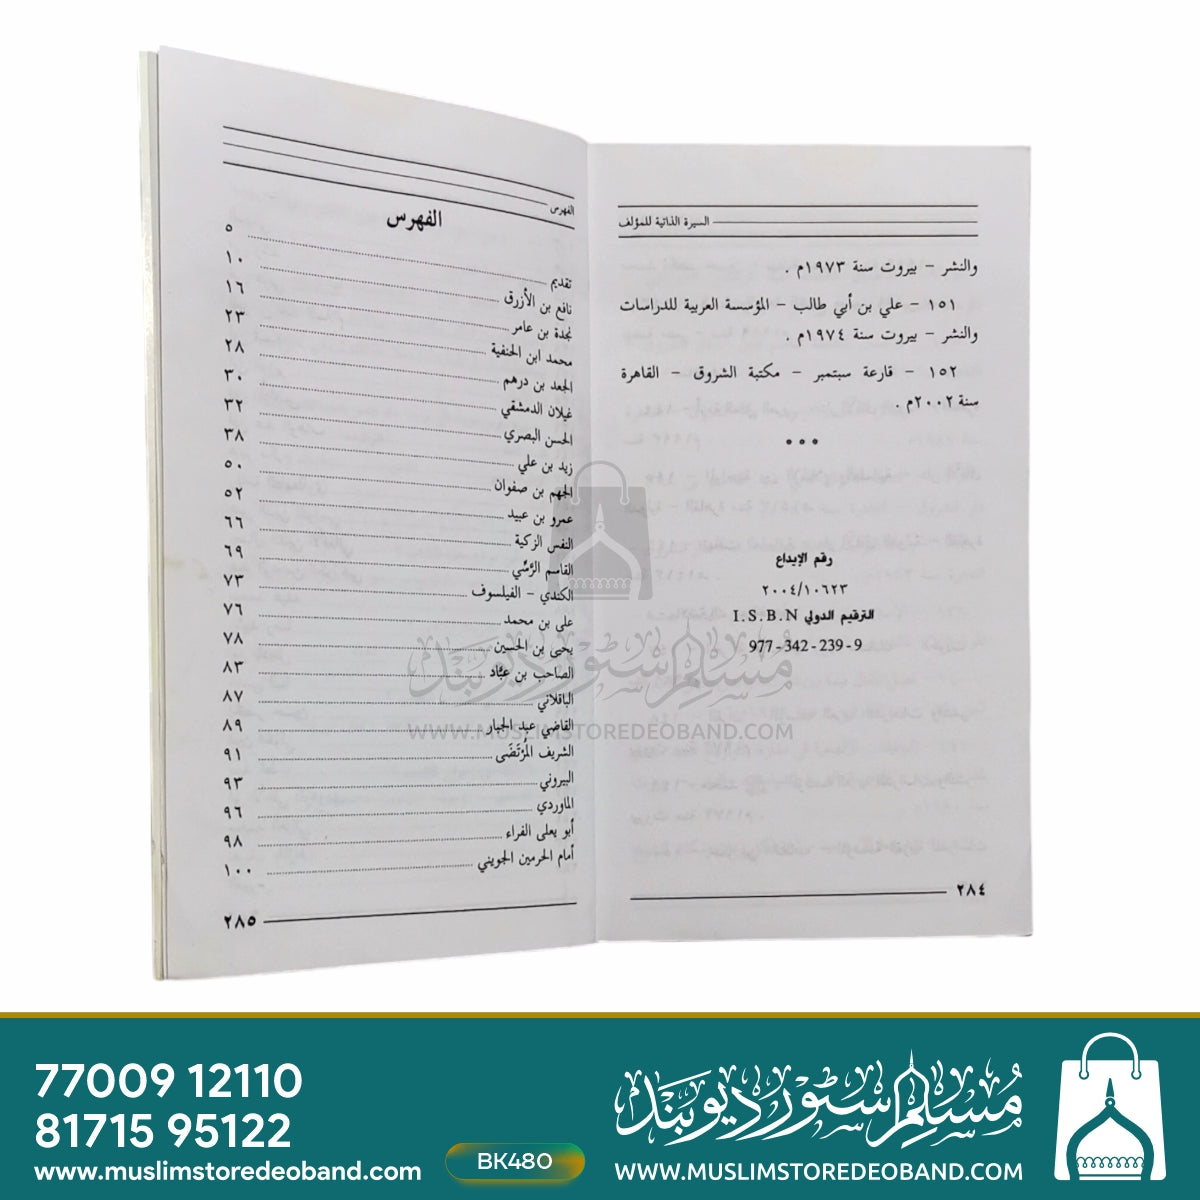 السيرة الذاتية للمؤلف
والنشر - بيروت سنة ١٩٧٣م .
١٥١ - علي بن أبي طالب - المؤسسة العربية للدراسات
والنشر - بيروت سنة ١٩٧٤م .
١٥٢ - قارعة سبتمبر - مكتبة الشروق - القاهرة
سنة ٢٠٠٢م .
رقم الإيداع
٢٠٠٤/١٠٦٢٣
الترقيم الدولي I.S.B.N
977-342-239-9
٢٨٤
الفهرس
الفهرس
تقديم ٥
نافع بن الأزرق ١٠
نجدة بن عامر ١٦
محمد ابن الحنفية ٢٣
الجعد بن درهم ٢٨
غيلان الدمشقي ٣٠
الحسن البصري ٣٢
زيد بن علي ٣٨
الجهم بن صفوان ٥٠
عمرو بن عبيد ٥٢
النفس الزكية ٦٦
القاسم الرَّسِّي ٦٩
الكندي - الفيلسوف ٧٣
علي بن محمد ٧٦
يحيى بن الحسين ٧٨
الصاحب بن عبَّاد ٨٣
الباقلاني ٨٧
القاضي عبد الجبار ٨٩
الشريف المُرْتَضَى ٩١
البيروني ٩٣
الماوردي ٩٦
أبو يعلى الفراء ٩٨
أمام الحرمين الجويني ١٠٠
٢٨٥
مسلم سٹور دیوبند
WWW.MUSLIMSTOREDEOBAND.COM
77009 12110
81715 95122
www.muslimstoredeoband.com
BK480
مسلم سٹور دیوبند
WWW.MUSLIMSTOREDEOBAND.COM